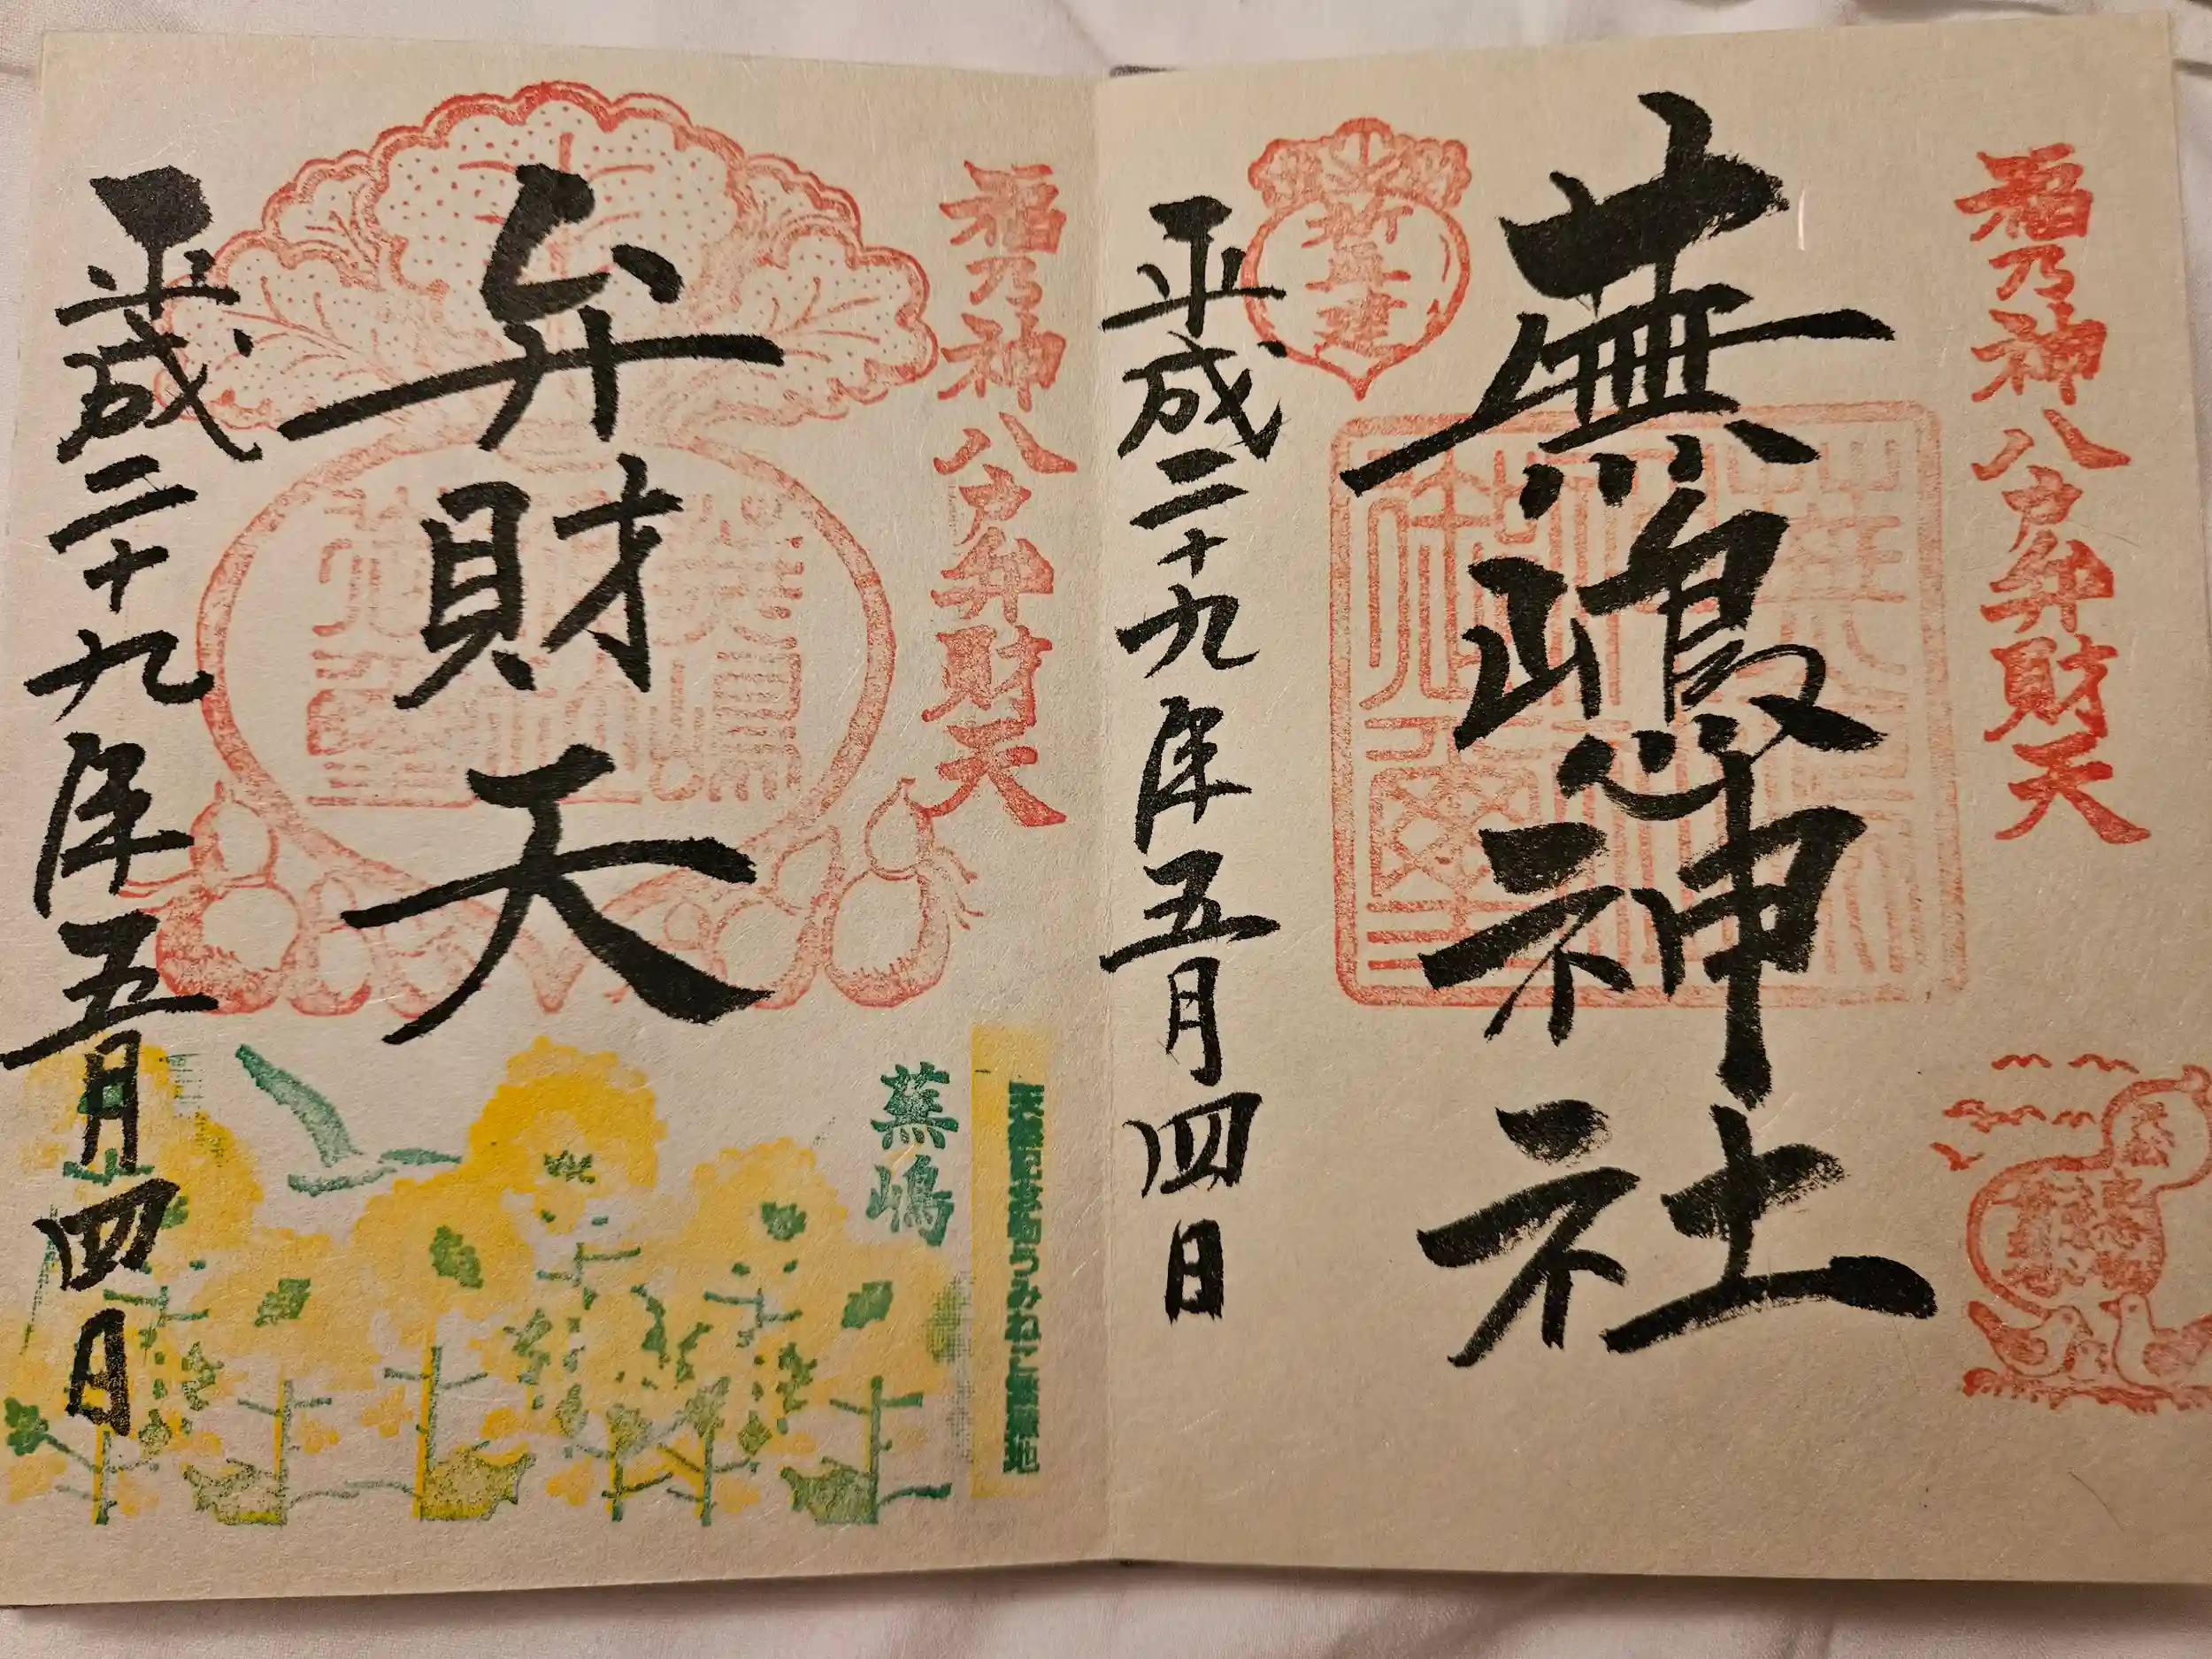 福乃神八戸弁財天
蕪嶋神社
平成二十九年五月四日
福乃神八戸弁財天
弁財天
平成二十九年五月四日
天然記念物うみねこ繁殖地
蕪嶋